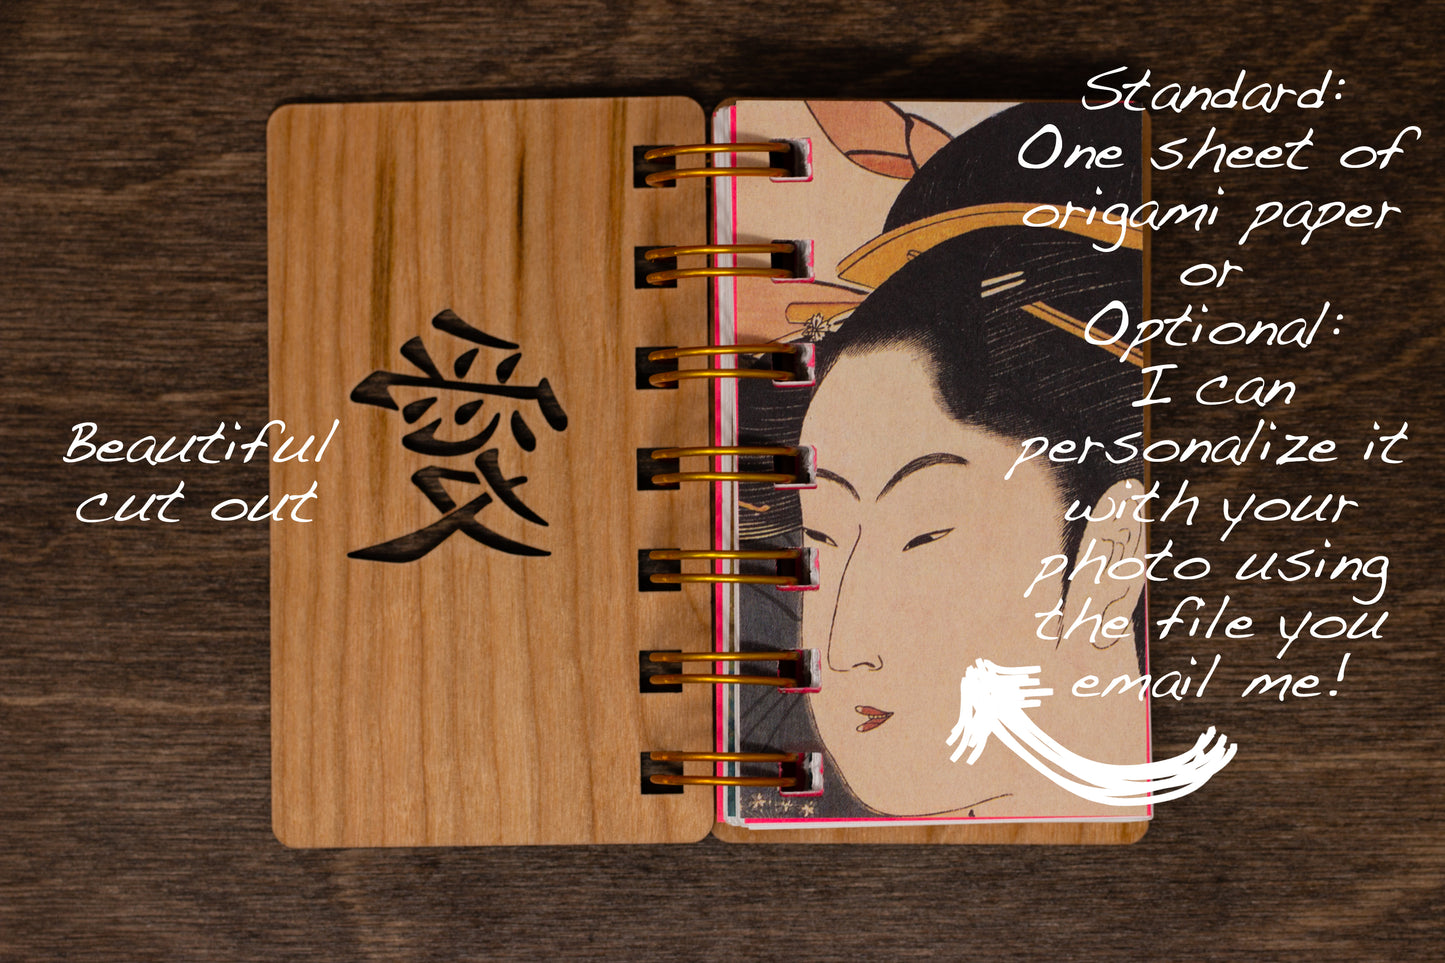 Beautiful
cut out
愛
Standard:
One sheet of
origami paper
or
Optional:
I can
personalize it
with your
photo using
the file you
email me!